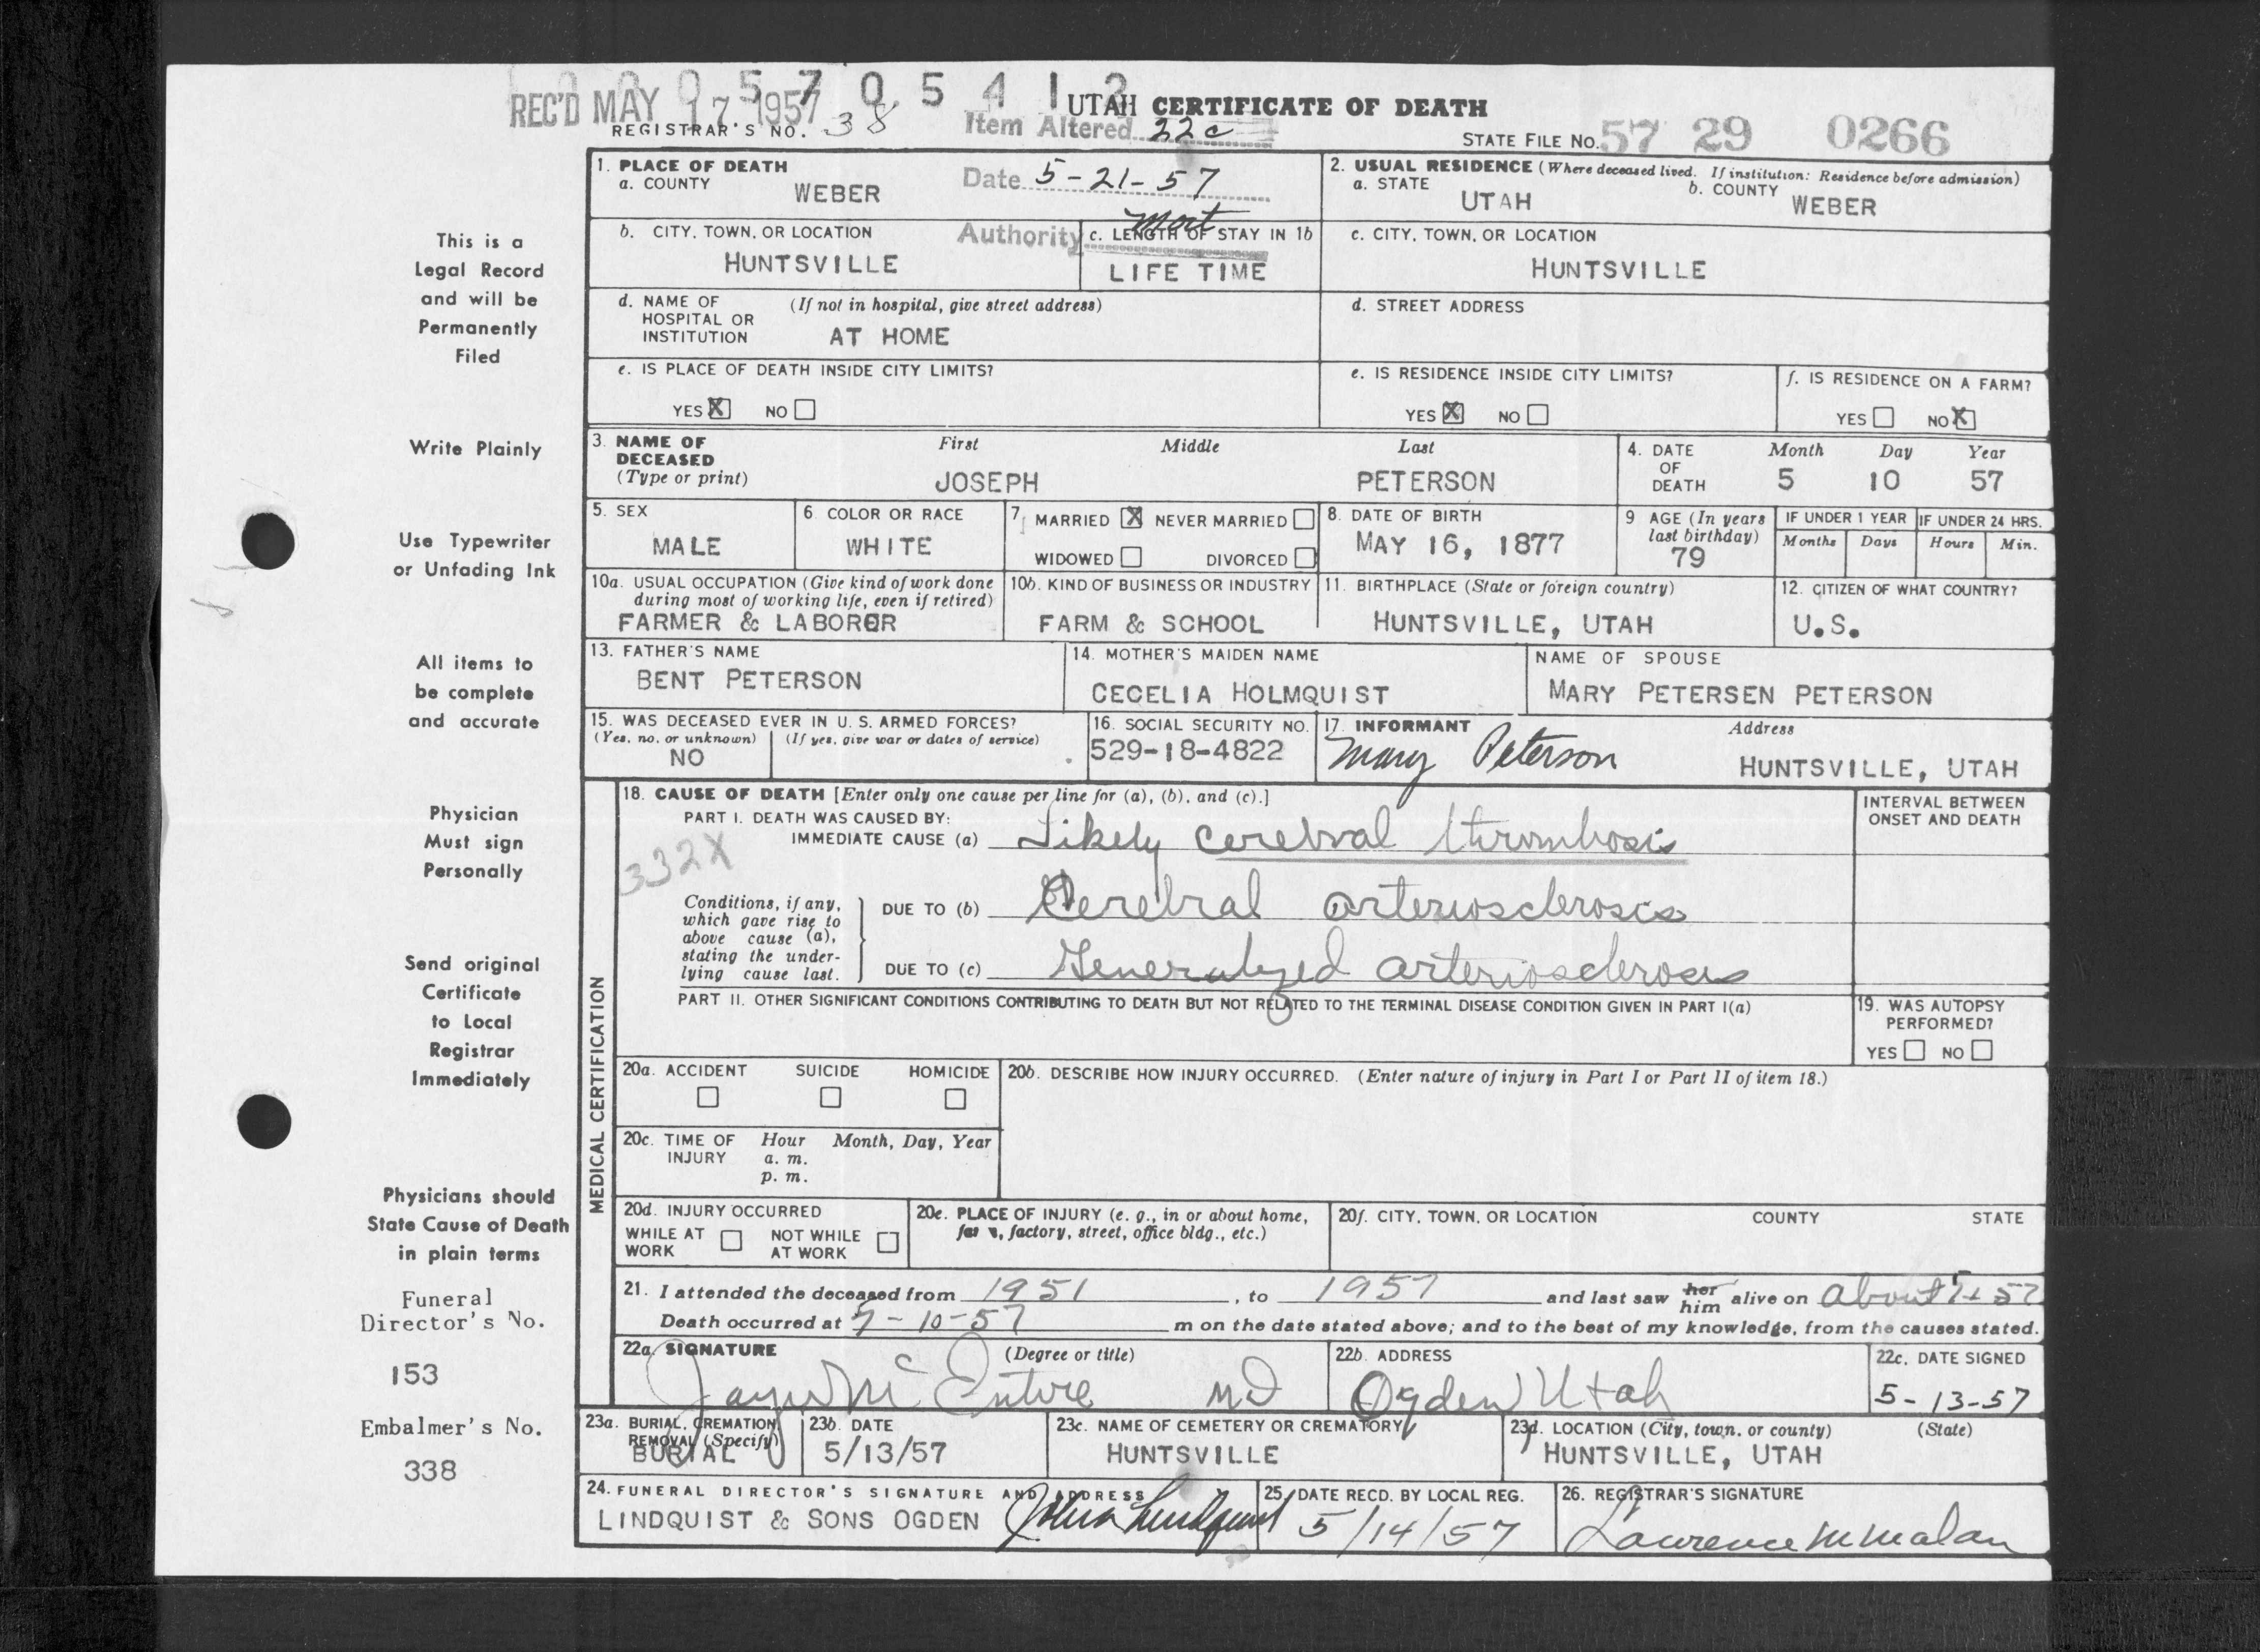 0 0 5 7 0 5 4 1 2
REC'D MAY 17 1957
UTAH CERTIFICATE OF DEATH
REGISTRAR'S NO. 38
Item Altered 22c
STATE FILE NO. 57 29 0266
Date 5-21-57
Authority Mort
1. PLACE OF DEATH
a. COUNTY WEBER
2. USUAL RESIDENCE (Where deceased lived. If institution: Residence before admission)
a. STATE UTAH b. COUNTY WEBER
b. CITY, TOWN, OR LOCATION HUNTSVILLE
c. LENGTH OF STAY IN 1b LIFE TIME
c. CITY, TOWN, OR LOCATION HUNTSVILLE
d. NAME OF HOSPITAL OR INSTITUTION (If not in hospital, give street address) AT HOME
d. STREET ADDRESS
e. IS PLACE OF DEATH INSIDE CITY LIMITS?
YES X NO
e. IS RESIDENCE INSIDE CITY LIMITS?
YES X NO
f. IS RESIDENCE ON A FARM?
YES NO X
3. NAME OF DECEASED (Type or print)
First Middle Last
JOSEPH PETERSON
4. DATE OF DEATH
Month Day Year
5 10 57
5. SEX MALE
6. COLOR OR RACE WHITE
7. MARRIED X NEVER MARRIED
WIDOWED DIVORCED
8. DATE OF BIRTH MAY 16, 1877
9 AGE (In years last birthday) 79
IF UNDER 1 YEAR Months Days
IF UNDER 24 HRS. Hours Min.
10a. USUAL OCCUPATION (Give kind of work done during most of working life, even if retired)
FARMER & LABORER
10b. KIND OF BUSINESS OR INDUSTRY
FARM & SCHOOL
11. BIRTHPLACE (State or foreign country)
HUNTSVILLE, UTAH
12. CITIZEN OF WHAT COUNTRY?
U.S.
13. FATHER'S NAME
BENT PETERSON
14. MOTHER'S MAIDEN NAME
CECELIA HOLMQUIST
NAME OF SPOUSE
MARY PETERSEN PETERSON
15. WAS DECEASED EVER IN U. S. ARMED FORCES?
(Yes, no, or unknown) (If yes, give war or dates of service)
NO
16. SOCIAL SECURITY NO.
529-18-4822
17. INFORMANT Address
Mary Peterson HUNTSVILLE, UTAH
MEDICAL CERTIFICATION
18. CAUSE OF DEATH [Enter only one cause per line for (a), (b), and (c).]
INTERVAL BETWEEN ONSET AND DEATH
PART I. DEATH WAS CAUSED BY:
IMMEDIATE CAUSE (a) Likely cerebral thrombosis
332X
Conditions, if any, which gave rise to above cause (a), stating the underlying cause last.
DUE TO (b) Cerebral arteriosclerosis
DUE TO (c) Generalyzed arteriosclerosis
PART II. OTHER SIGNIFICANT CONDITIONS CONTRIBUTING TO DEATH BUT NOT RELATED TO THE TERMINAL DISEASE CONDITION GIVEN IN PART I(a)
19. WAS AUTOPSY PERFORMED?
YES NO
20a. ACCIDENT SUICIDE HOMICIDE
20b. DESCRIBE HOW INJURY OCCURRED. (Enter nature of injury in Part I or Part II of item 18.)
20c. TIME OF INJURY Hour Month, Day, Year
a. m.
p. m.
20d. INJURY OCCURRED
WHILE AT WORK NOT WHILE AT WORK
20e. PLACE OF INJURY (e. g., in or about home, factory, street, office bldg., etc.)
20f. CITY, TOWN, OR LOCATION COUNTY STATE
21. I attended the deceased from 1951, to 1957 and last saw her him alive on about
Death occurred at 5-10-57 m on the date stated above; and to the best of my knowledge, from the causes stated.
22a. SIGNATURE (Degree or title)
Mc Entire MD
22b. ADDRESS
Ogden Utah
22c. DATE SIGNED
5-13-57
23a. BURIAL, CREMATION, REMOVAL (Specify)
BURIAL
23b. DATE
5/13/57
23c. NAME OF CEMETERY OR CREMATORY
HUNTSVILLE
23d. LOCATION (City, town, or county) (State)
HUNTSVILLE, UTAH
24. FUNERAL DIRECTOR'S SIGNATURE AND ADDRESS
LINDQUIST & SONS OGDEN John Lindquist
25. DATE RECD. BY LOCAL REG.
5/14/57
26. REGISTRAR'S SIGNATURE
Lawrence M Malan
This is a
Legal Record
and will be
Permanently
Filed
Write Plainly
Use Typewriter
or Unfading Ink
All items to
be complete
and accurate
Physician
Must sign
Personally
Send original
Certificate
to Local
Registrar
Immediately
Physicians should
State Cause of Death
in plain terms
Funeral
Director's No.
153
Embalmer's No.
338